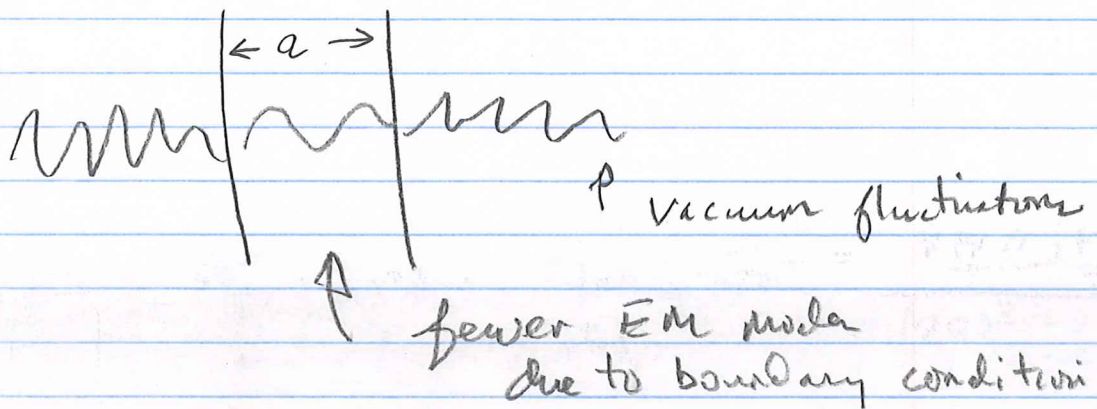 ← a →
vacuum fluctuations
fewer EM modes
due to boundary condition